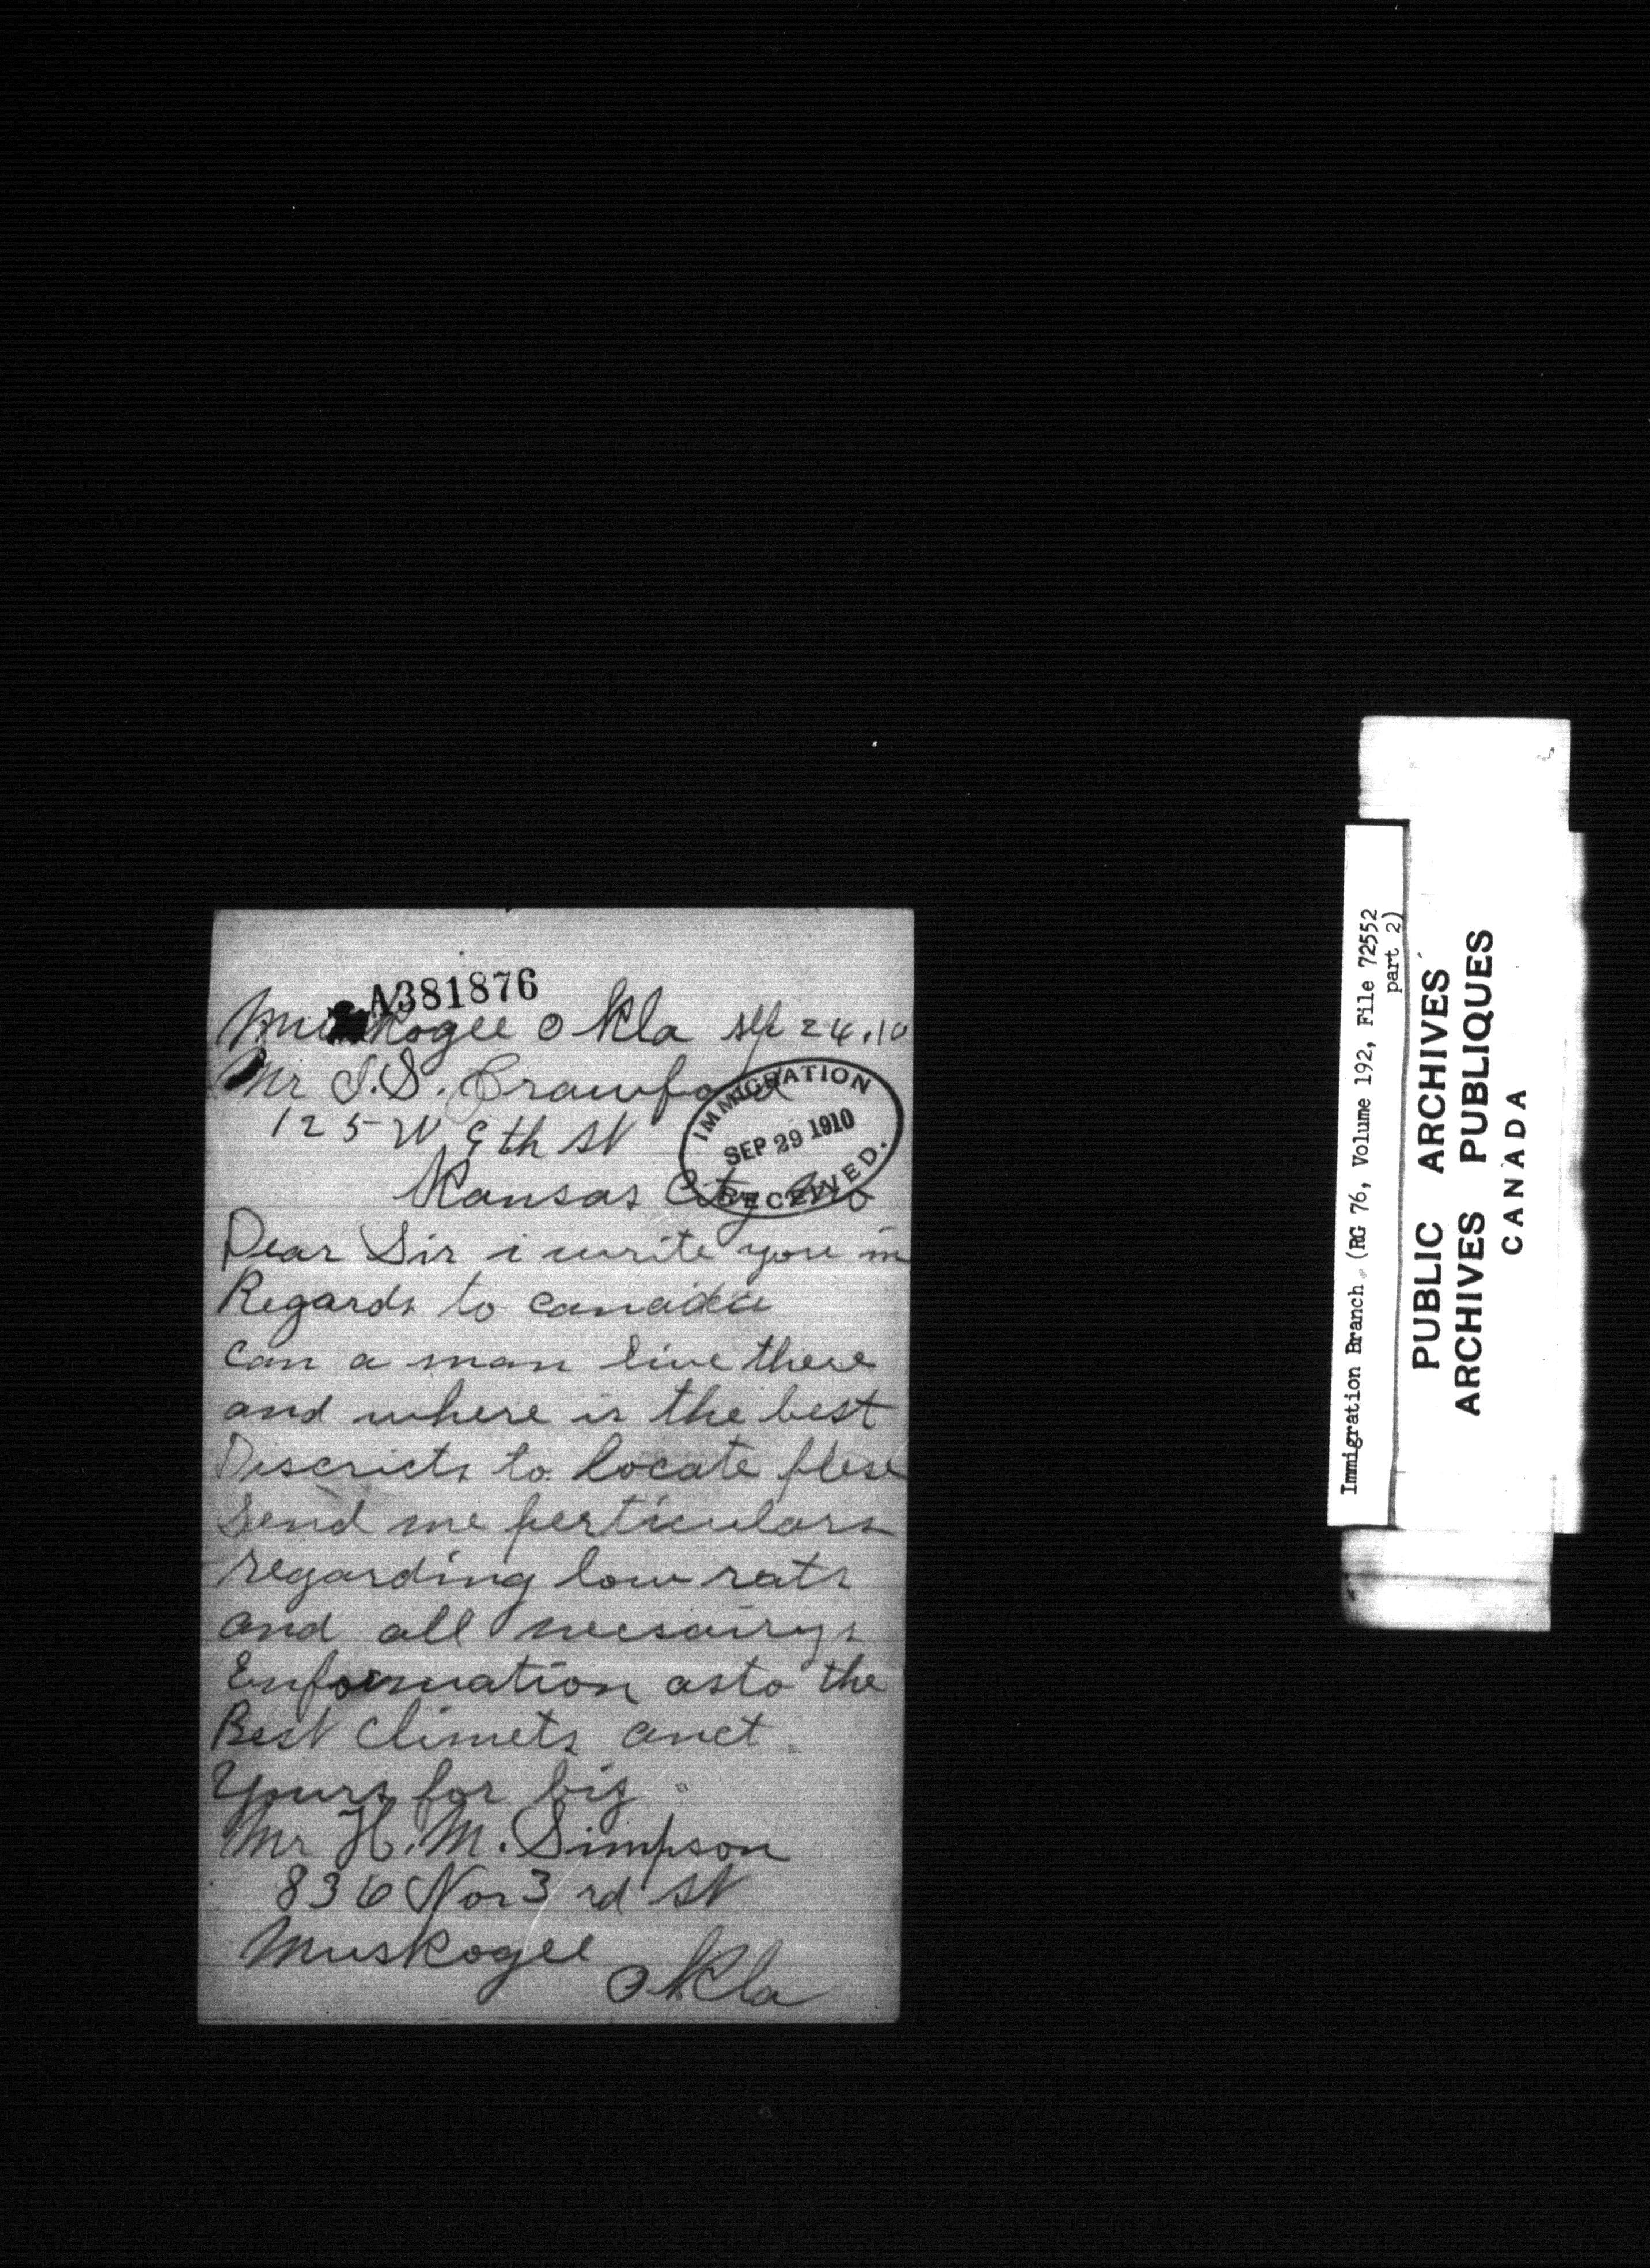 A381876
Muskogee Okla sep 24.10
Mr J.S. Crawford
125 W 9th St
Kansas City Mo
IMMIGRATION
SEP 29 1910
RECEIVED.
Dear Sir i write you in
Regards to canada
can a man live there
and where is the best
Discricts to locate plese
Send me perticulars
regarding low rats
and all necsairys
Enformation as to the
Best Climets anct
Yours for biz
Mr H. M. Simpson
836 Nor 3 rd St
Muskogee
Okla
Immigration Branch (RG 76, Volume 192, File 72552
part 2)
PUBLIC ARCHIVES
ARCHIVES PUBLIQUES
CANADA